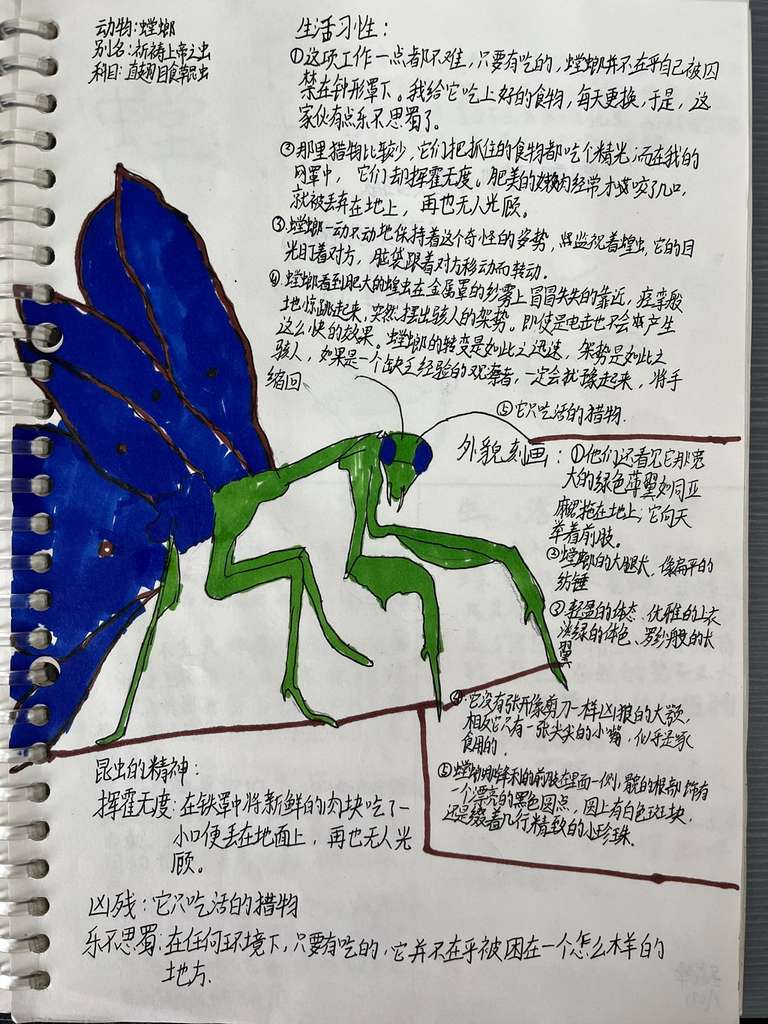 动物:螳螂
别名:祈祷上帝之虫
科目:直翅目食草昆虫
生活习性:
①这项工作一点都不难,只要有吃的,螳螂并不在乎自己被囚
禁在钟形罩下。我给它吃上好的食物,每天更换,于是,这
家伙有点乐不思蜀了。
②那里猎物比较少,它们把抓住的食物都吃个精光;而在我的
网罩中,它们却挥霍无度。肥美的嫩肉经常才咬了几口,
就被丢弃在地上,再也无人光顾。
③螳螂一动不动地保持着这个奇怪的姿势,监视着蝗虫,它的目
光盯着对方,脑袋跟着对方移动而转动.
④螳螂看到肥大的蝗虫在金属罩的纱雾上冒冒失失的靠近,痉挛般
地惊跳起来,突然摆出骇人的架势。即使是电击也不会产生
这么快的效果。螳螂的转变是如此之迅速,架势是如此之
骇人,如果是一个缺乏经验的观察者,一定会犹豫起来,将手
缩回.
⑤它只吃活的猎物.
外貌刻画:①他们还看见它那宽
大的绿色薄翼如同亚
麻裙拖在地上;它向天
举着前肢。
②螳螂的大腿长、像扁平的
纺锤
③轻盈的体态、优雅的上衣
淡绿的体色、罗纱般的长
翼
④.它没有张开像剪刀一样凶狠的大颚,
相反它只有一张尖尖的小嘴,似乎是家
食用的.
⑤螳螂的前肢在里面一侧,的根部饰有
一个漂亮的黑色圆点,圆上有白色斑块,
还是缀着几行精致的小珍珠.
昆虫的精神:
挥霍无度:在铁罩中将新鲜的肉块吃了一
小口便丢在地面上,再也无人光
顾。
凶残:它只吃活的猎物
乐不思蜀:在任何环境下,只要有吃的,它并不在乎被困在一个怎么样的
地方.